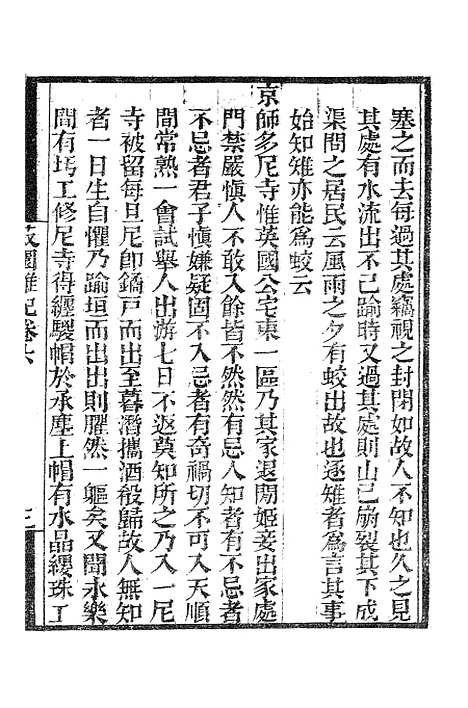 塞之而去每過其處竊視之封閉如故人不知也久之見
其處有水流出不已踰時又過其處則山已崩裂其下成
渠問之居民云風雨之夕有蛟出故也逐雉者爲言其事
始知雉亦能爲蛟云
京師多尼寺惟英國公宅東一區乃其家退閒姬妾出家處
門禁嚴愼人不敢入餘皆不然然有忌人知者有不忌者
不忌者君子愼嫌疑固不入忌者有奇禍切不可入天順
間常熟一會試舉人出游七日不返莫知所之乃入一尼
寺被留每旦尼卽鐍戸而出至暮潛攜酒殽歸故人無知
者一日生自懼乃踰垣而出出則臞然一軀矣又聞永樂
間有圬工修尼寺得纒騣帽於承塵上帽有水晶纓珠工
菽園雜記卷六
三